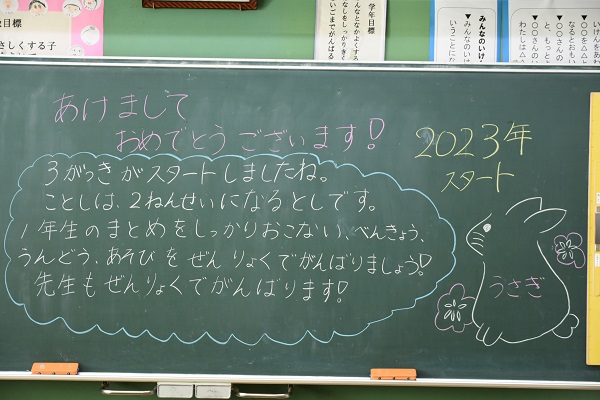 目標
さしくする子
学年目標
なとなかよくする
なしをしっかりき
いごまでがんばる
みんなのいけ
みんなのいけ
いうことにな
あけまして
おめでとうございます!
2023年
スタート
3がっきがスタートしましたね。
ことしは、2ねんせいになるとしです。
1年生のまとめをしっかりおこない、べんきょう、
うんどう、あそびをぜんりょくでがんばりましょう!
先生もぜんりょくでがんばります!
うさぎ